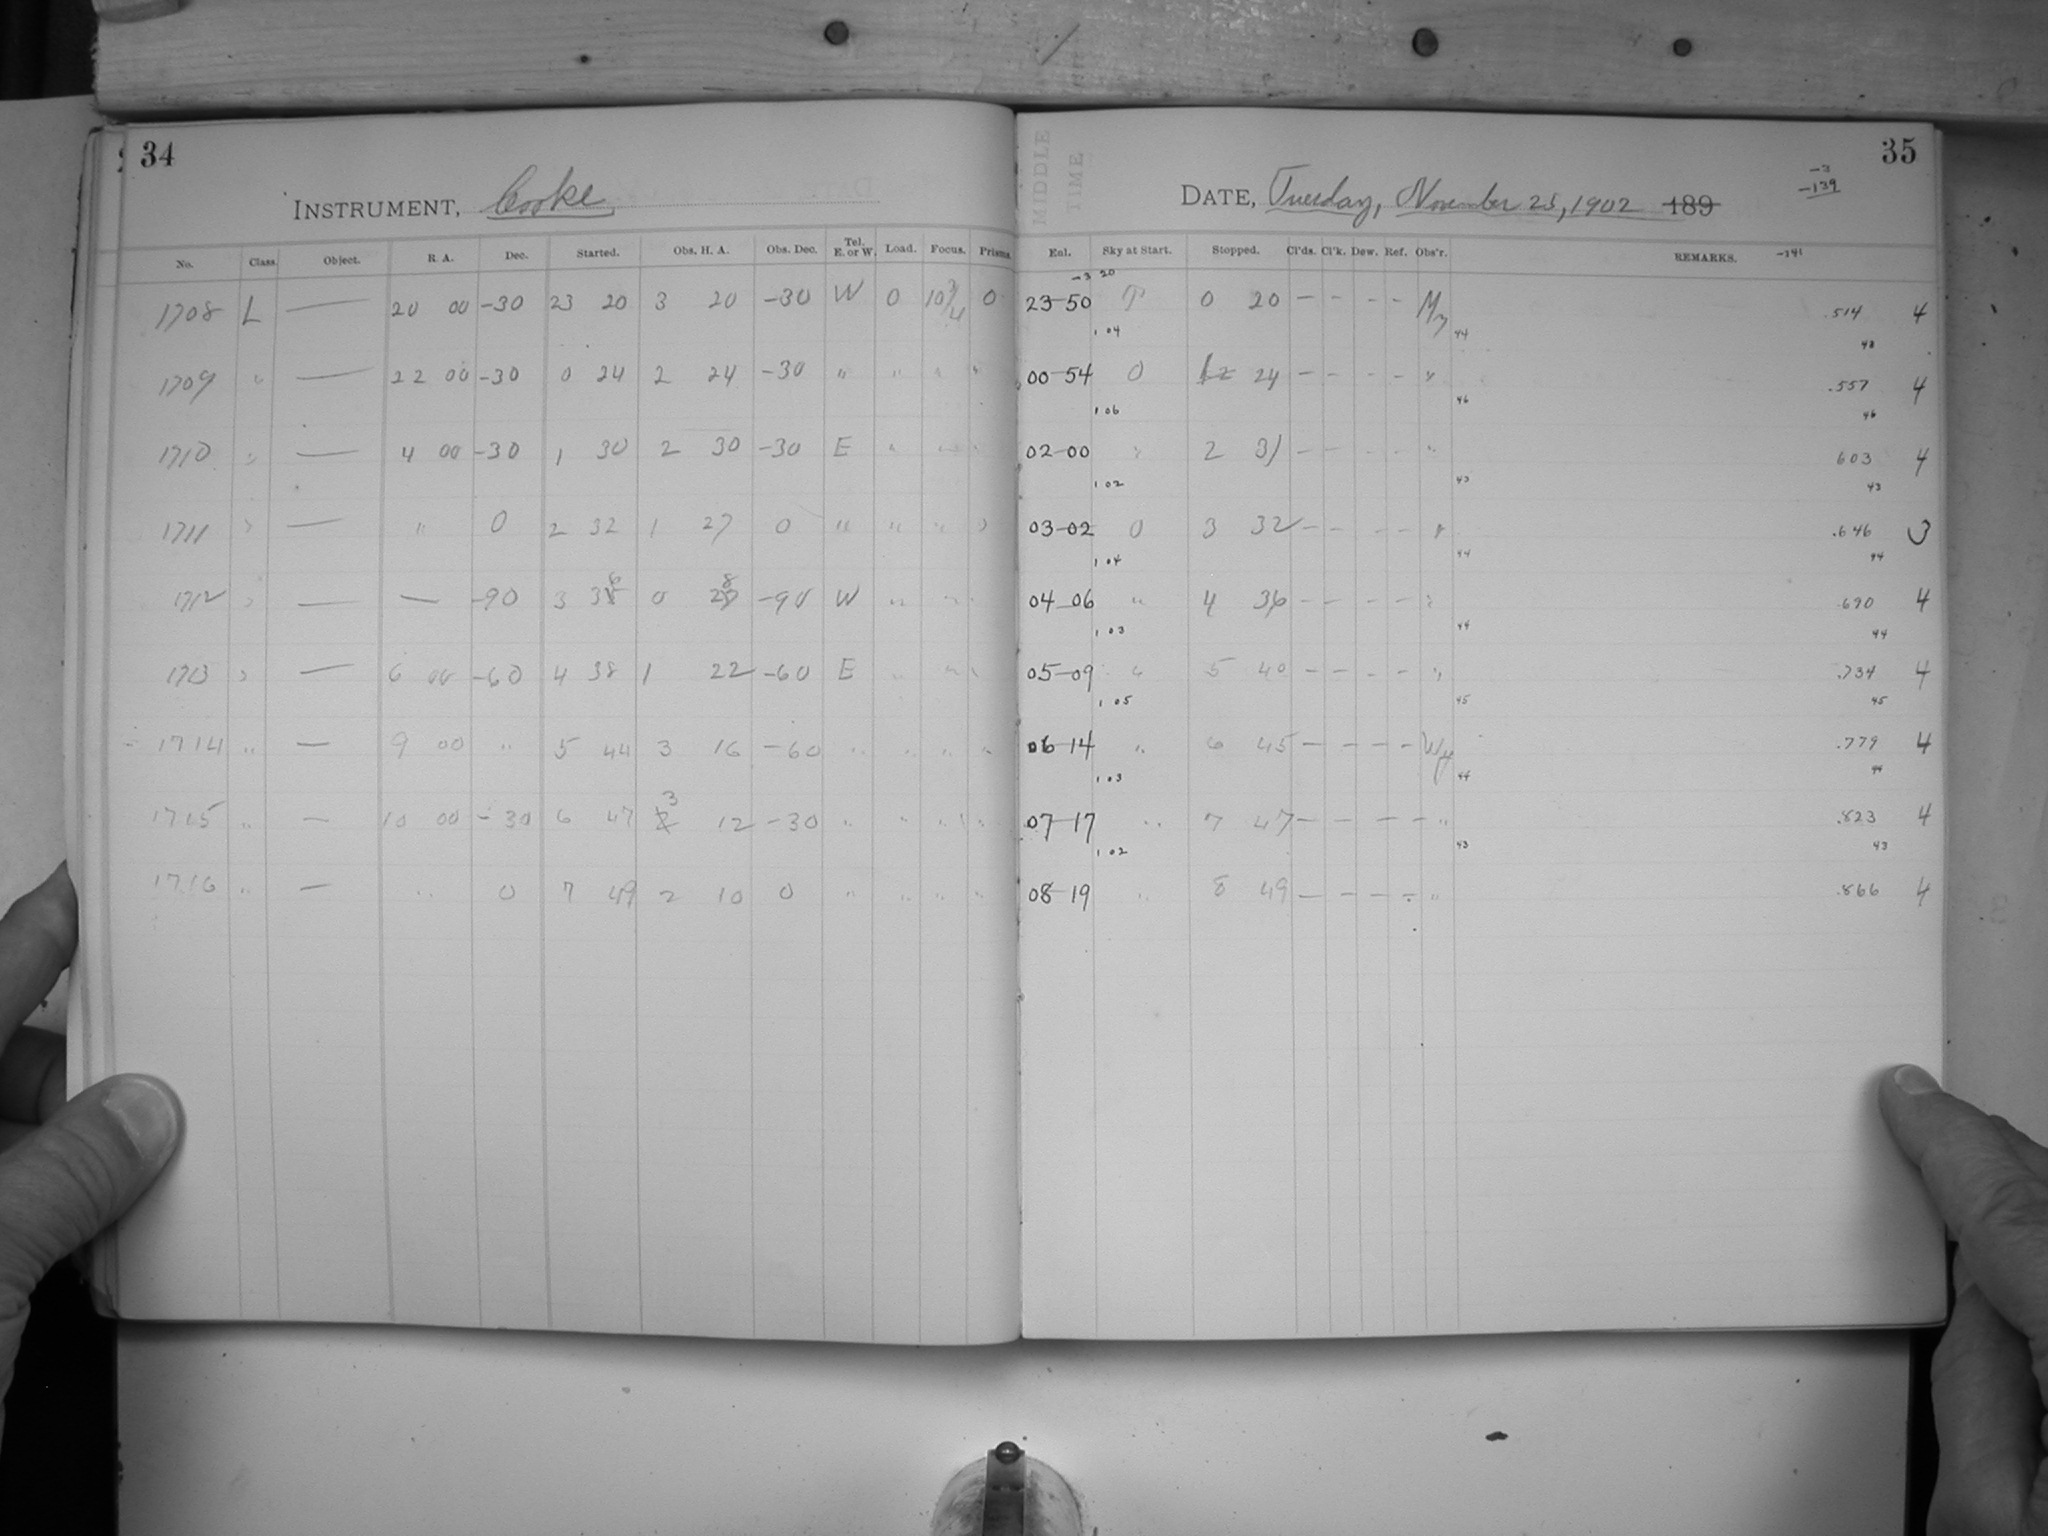 34
INSTRUMENT, Cooke
No. Class. Object. R. A. Dec. Started. Obs. H. A. Obs. Dec. Tel. E. or W. Load. Focus. Prisms.
1708 L — 20 00 -30 23 20 3 20 -30 W 0 10 3/4 0
1709 " — 22 00 -30 0 24 2 24 -30 " " " "
1710 " — 4 00 -30 1 30 2 30 -30 E " " "
1711 " — " 0 2 32 1 27 0 " " " "
1712 " — — -90 3 36 0 28 -90 W " "
1713 " — 6 00 -60 4 38 1 22 -60 E " " "
1714 " — 9 00 " 5 44 3 16 -60 " " " "
1715 " — 10 00 -30 6 47 3 12 -30 " " " "
1716 " — " 0 7 49 2 10 0 " " " "
35
MIDDLE
TIME
DATE, Tuesday, November 25, 1902 189
-3
-139
Enl. Sky at Start. Stopped. Cl'ds. Cl'k. Dew. Ref. Obs'r. REMARKS. -141
-3 20
23-50 0 20 — — — — My .514 4
1 04 44 43
00-54 0 12 24 — — — — " .557 4
1 06 46 46
02-00 " 2 31 — — — — " 603 4
1 02 43 43
03-02 0 3 32 — — — — " .646 3
1 04 44 44
04-06 " 4 36 — — — — " .690 4
1 03 44 44
05-09 " 5 40 — — — — " .734 4
1 05 45 45
06-14 " 6 45 — — — — Wy .779 4
1 03 44 44
07-17 " 7 47 — — — — " .823 4
1 02 43 43
08-19 " 8 49 — — — — " .866 4